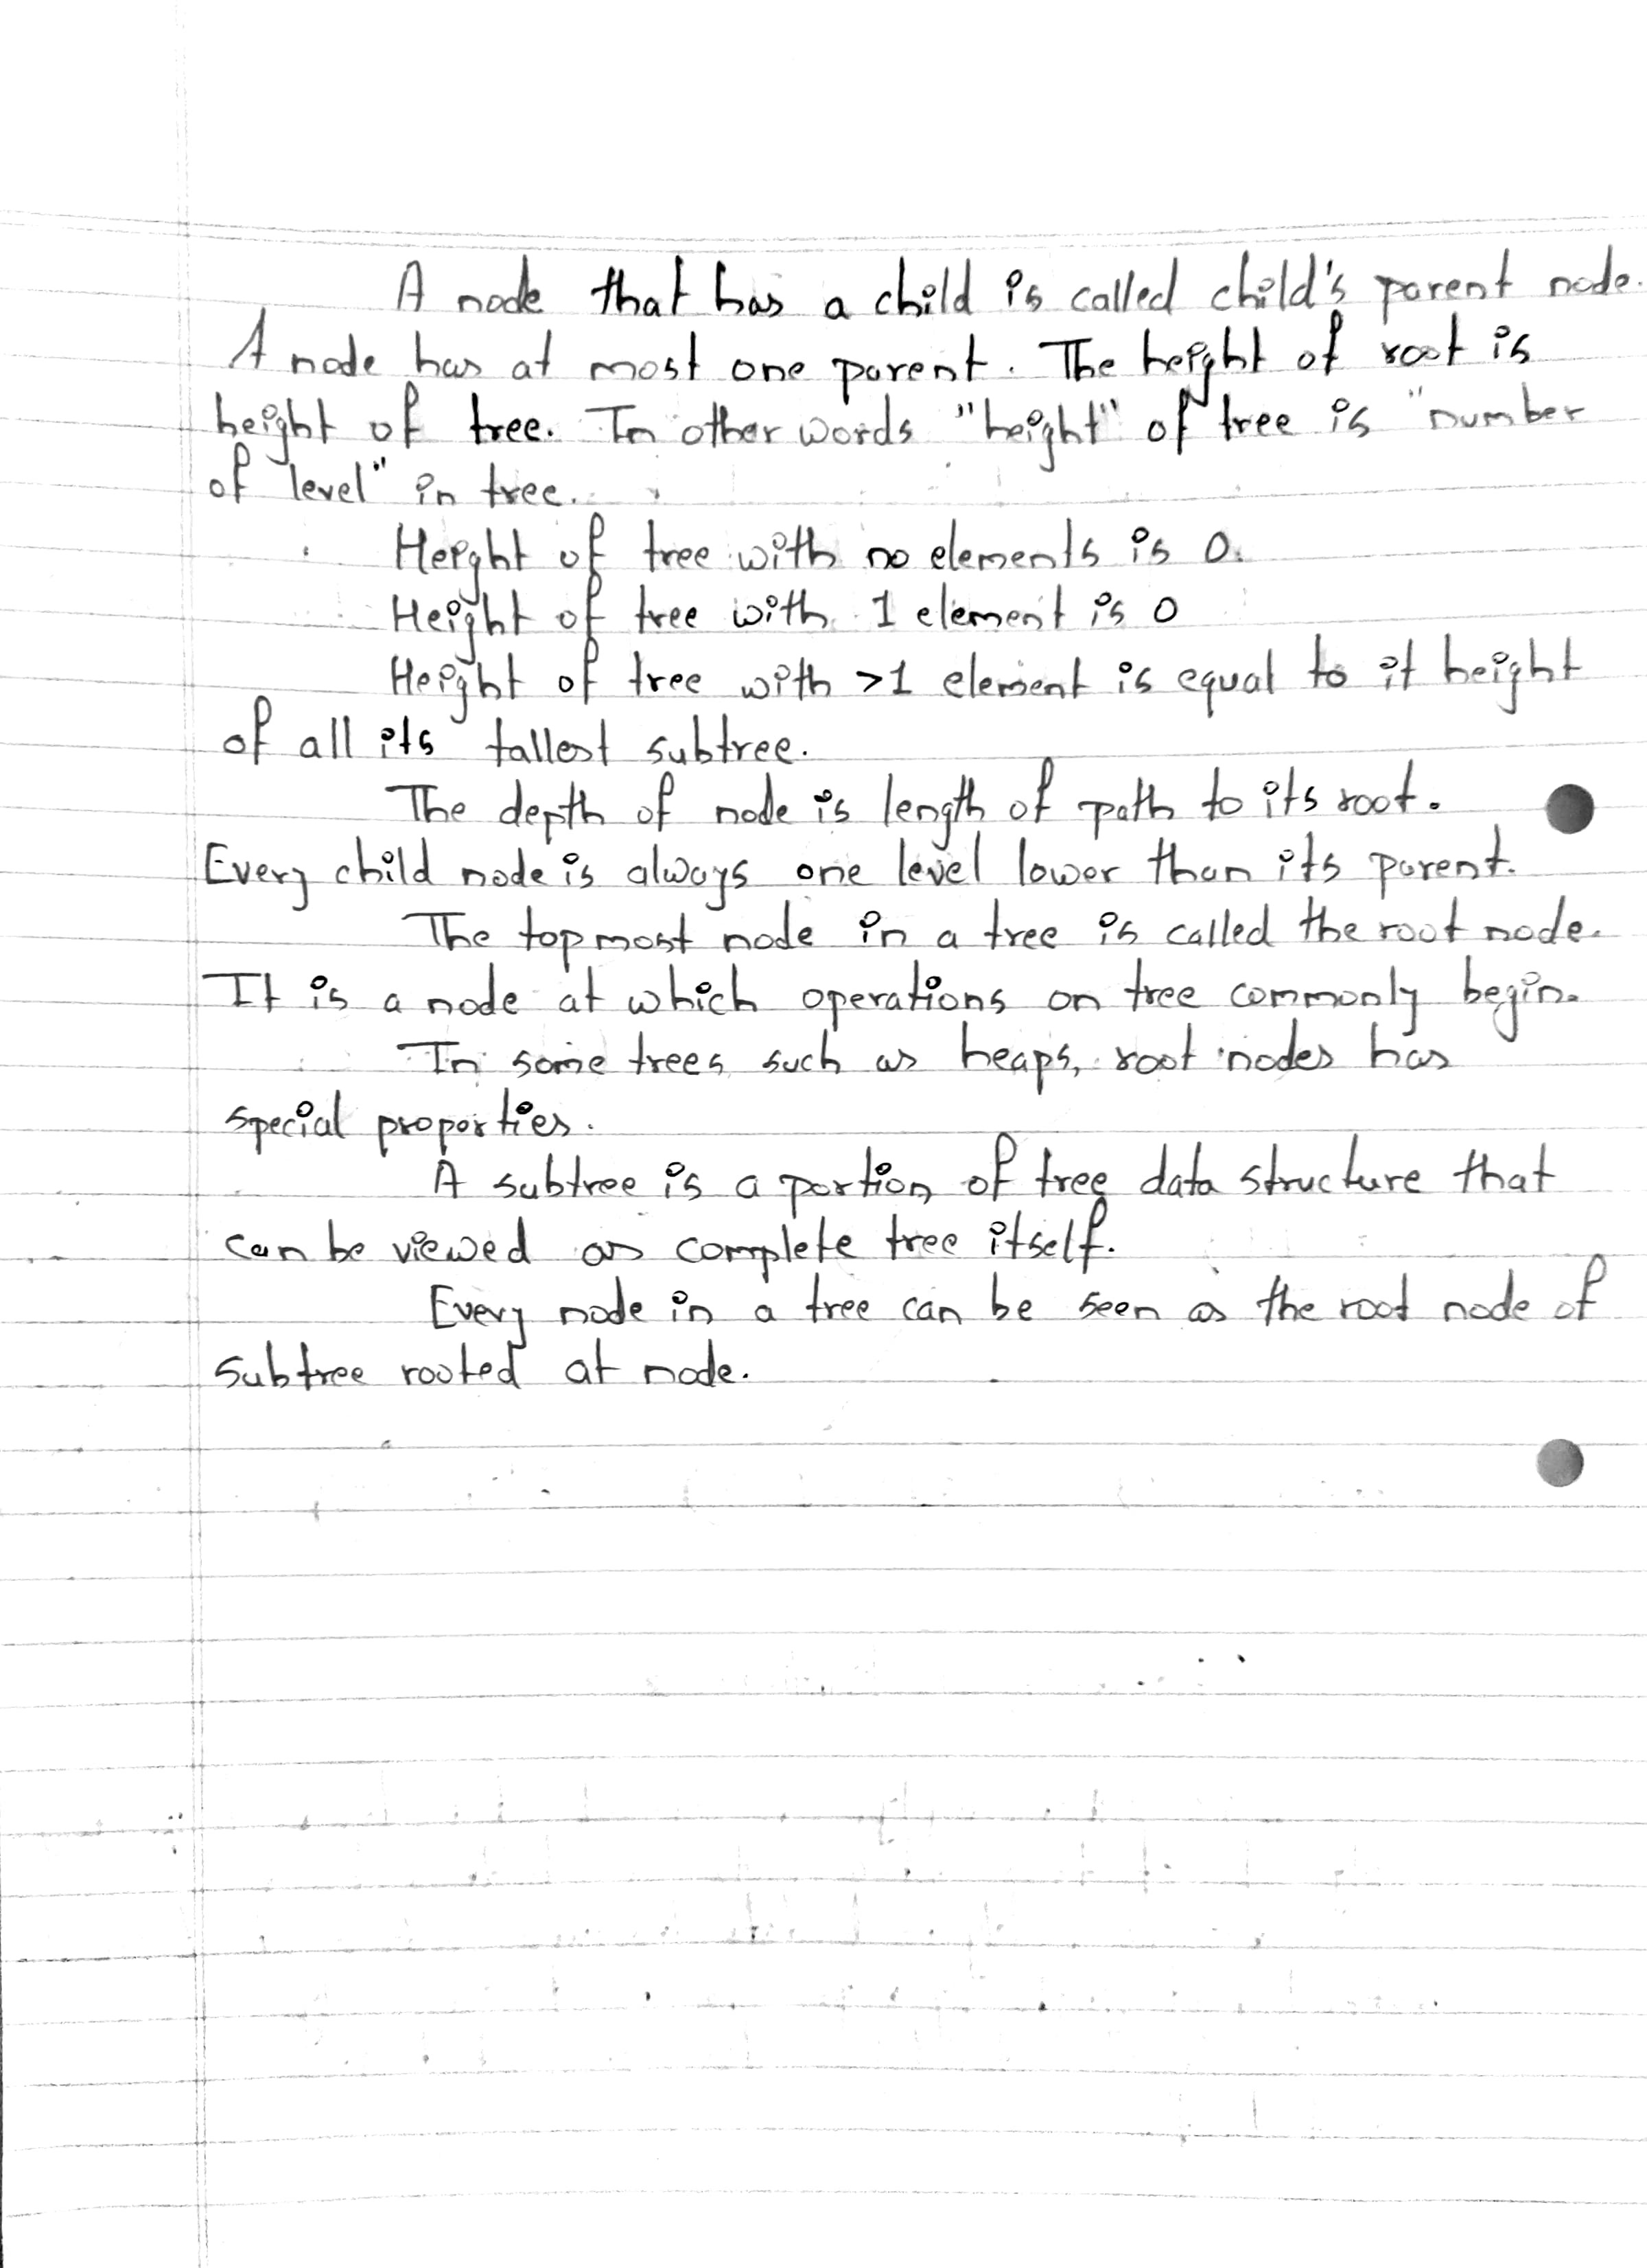 A node that has a child is called child's parent node.
A node has at most one parent. The height of root is
height of tree. In other words "height" of tree is "number
of level" in tree.
Height of tree with no elements is 0.
Height of tree with 1 element is 0
Height of tree with >1 element is equal to it height
of all its tallest subtree.
The depth of node is length of path to its root.
Every child node is always one level lower than its parent.
The topmost node in a tree is called the root node.
It is a node at which operations on tree commonly begin.
In some trees such as heaps, root nodes has
special properties.
A subtree is a portion of tree data structure that
can be viewed as complete tree itself.
Every node in a tree can be seen as the root node of
subtree rooted at node.